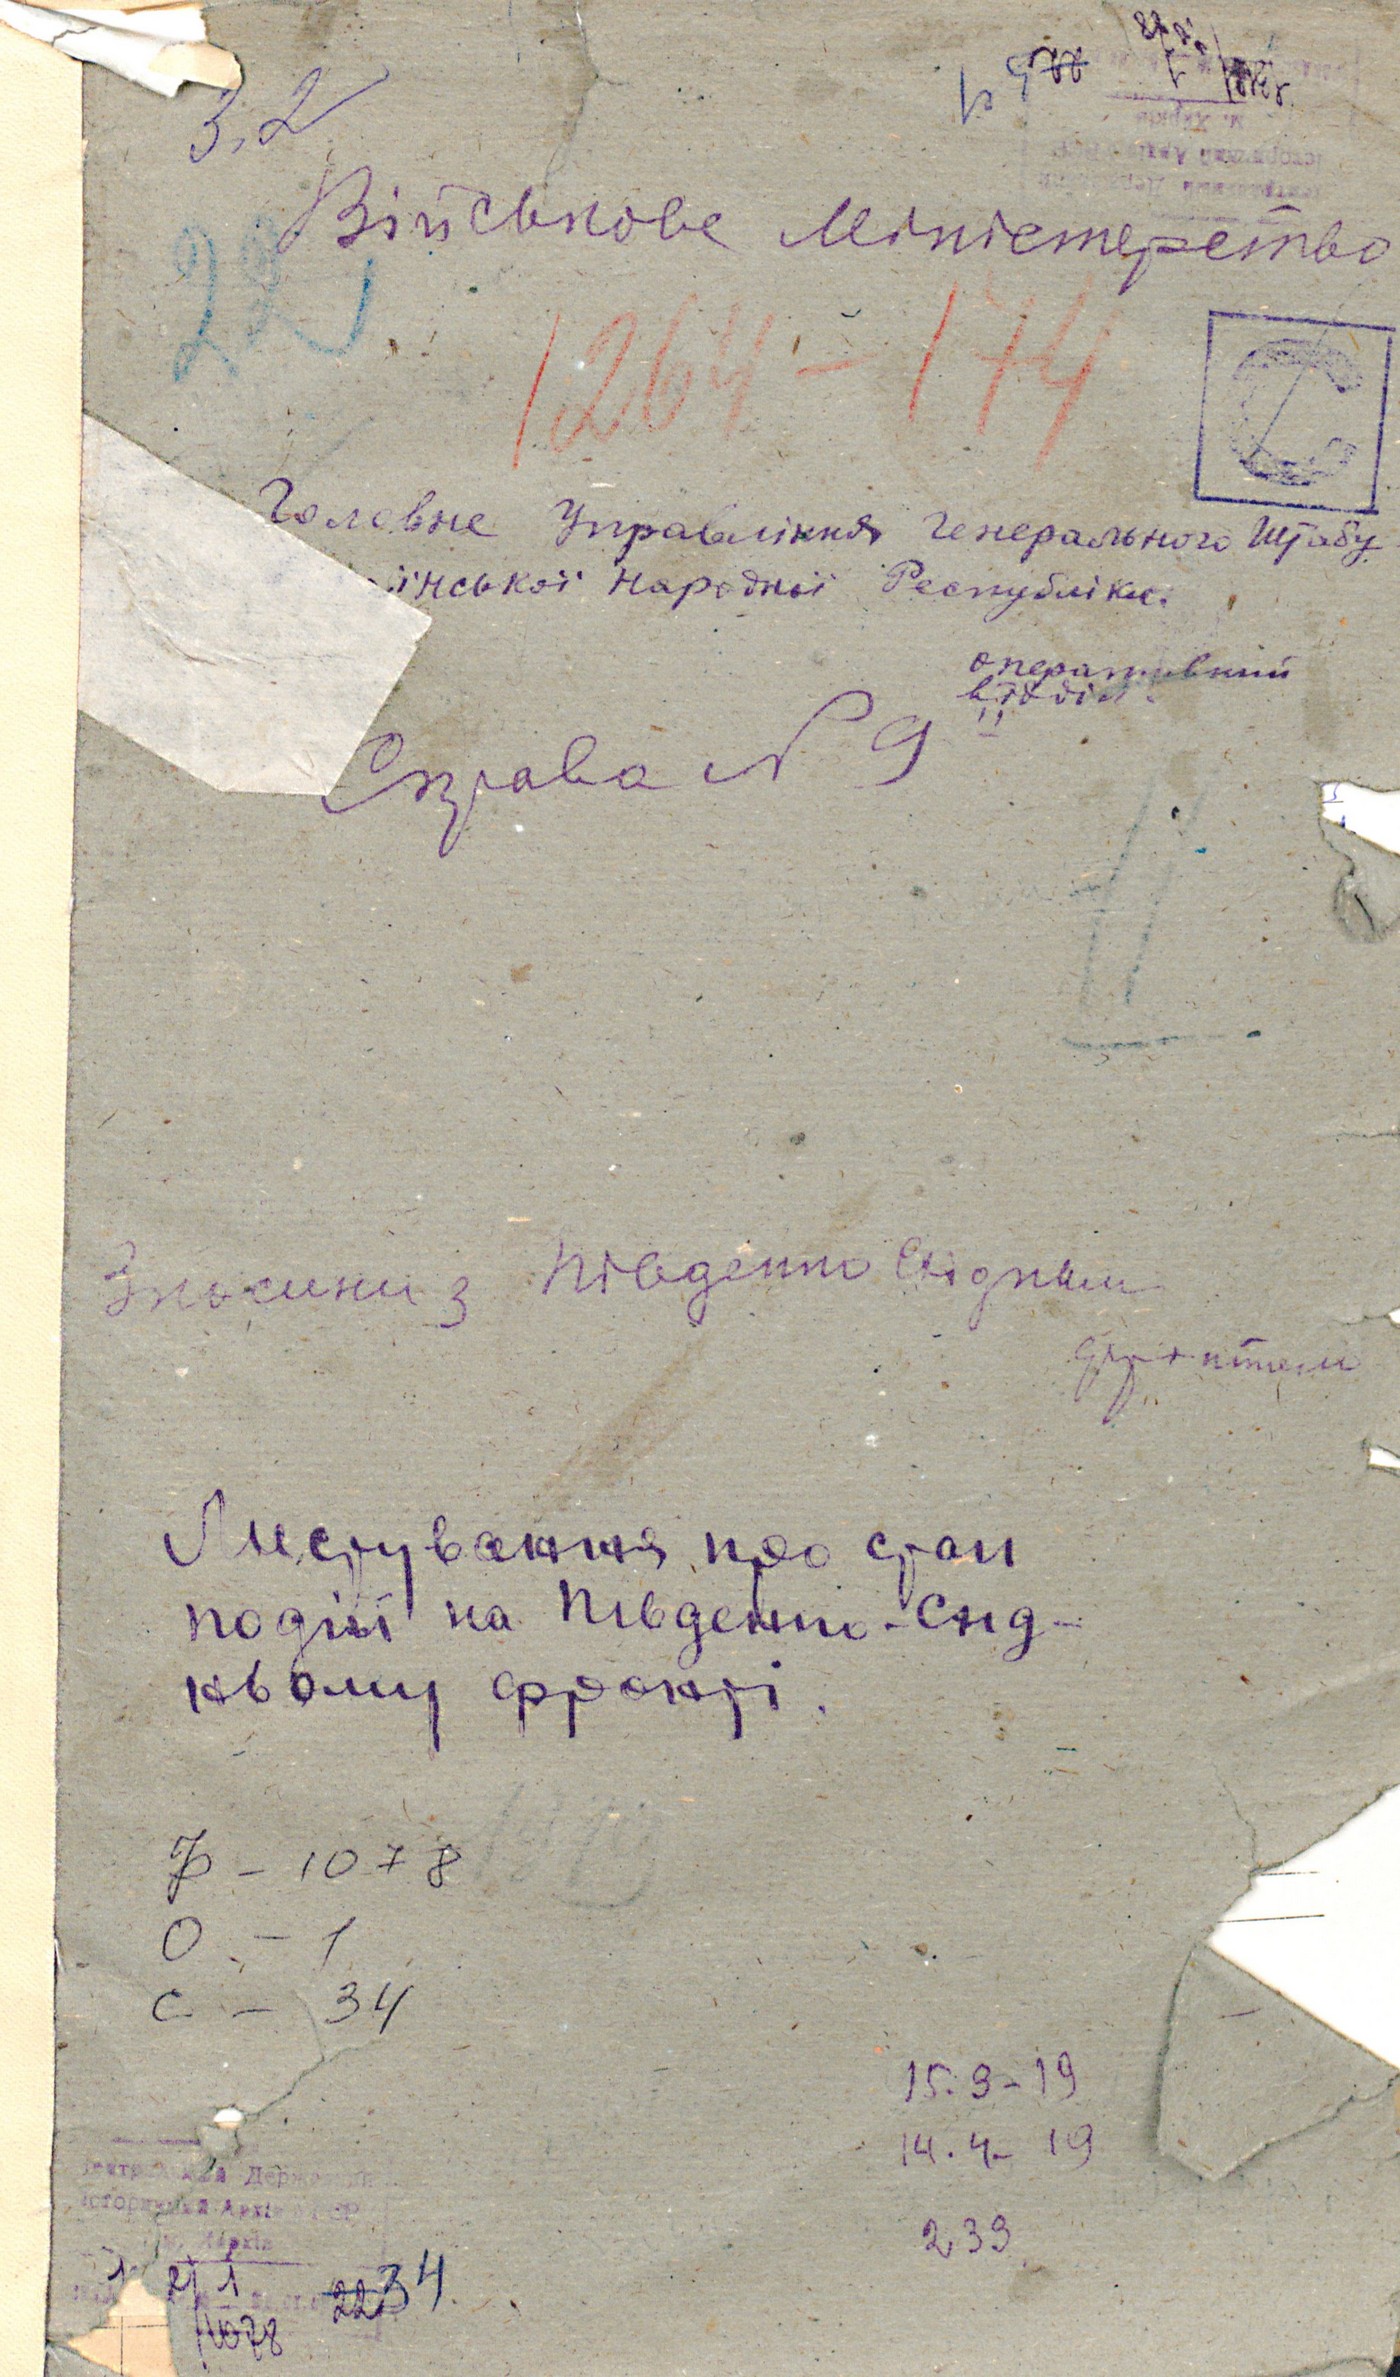 3,2
Військове Міністерство
22
1264-174
С
Головне Управління Генерального Штабу
їнської Народньої Республіки.
оперативний
відділ.
Справа N 9
Зносини з Південно Східним
фронтом
Листування про стан
подій на Південно-Схід-
ньому фронті.
Ф - 1078
О - 1
С - 34
15.3-19
14.4-19
239
Центральний Державний
Історичний Архів УРСР
м. Харків
1
1078
22 34